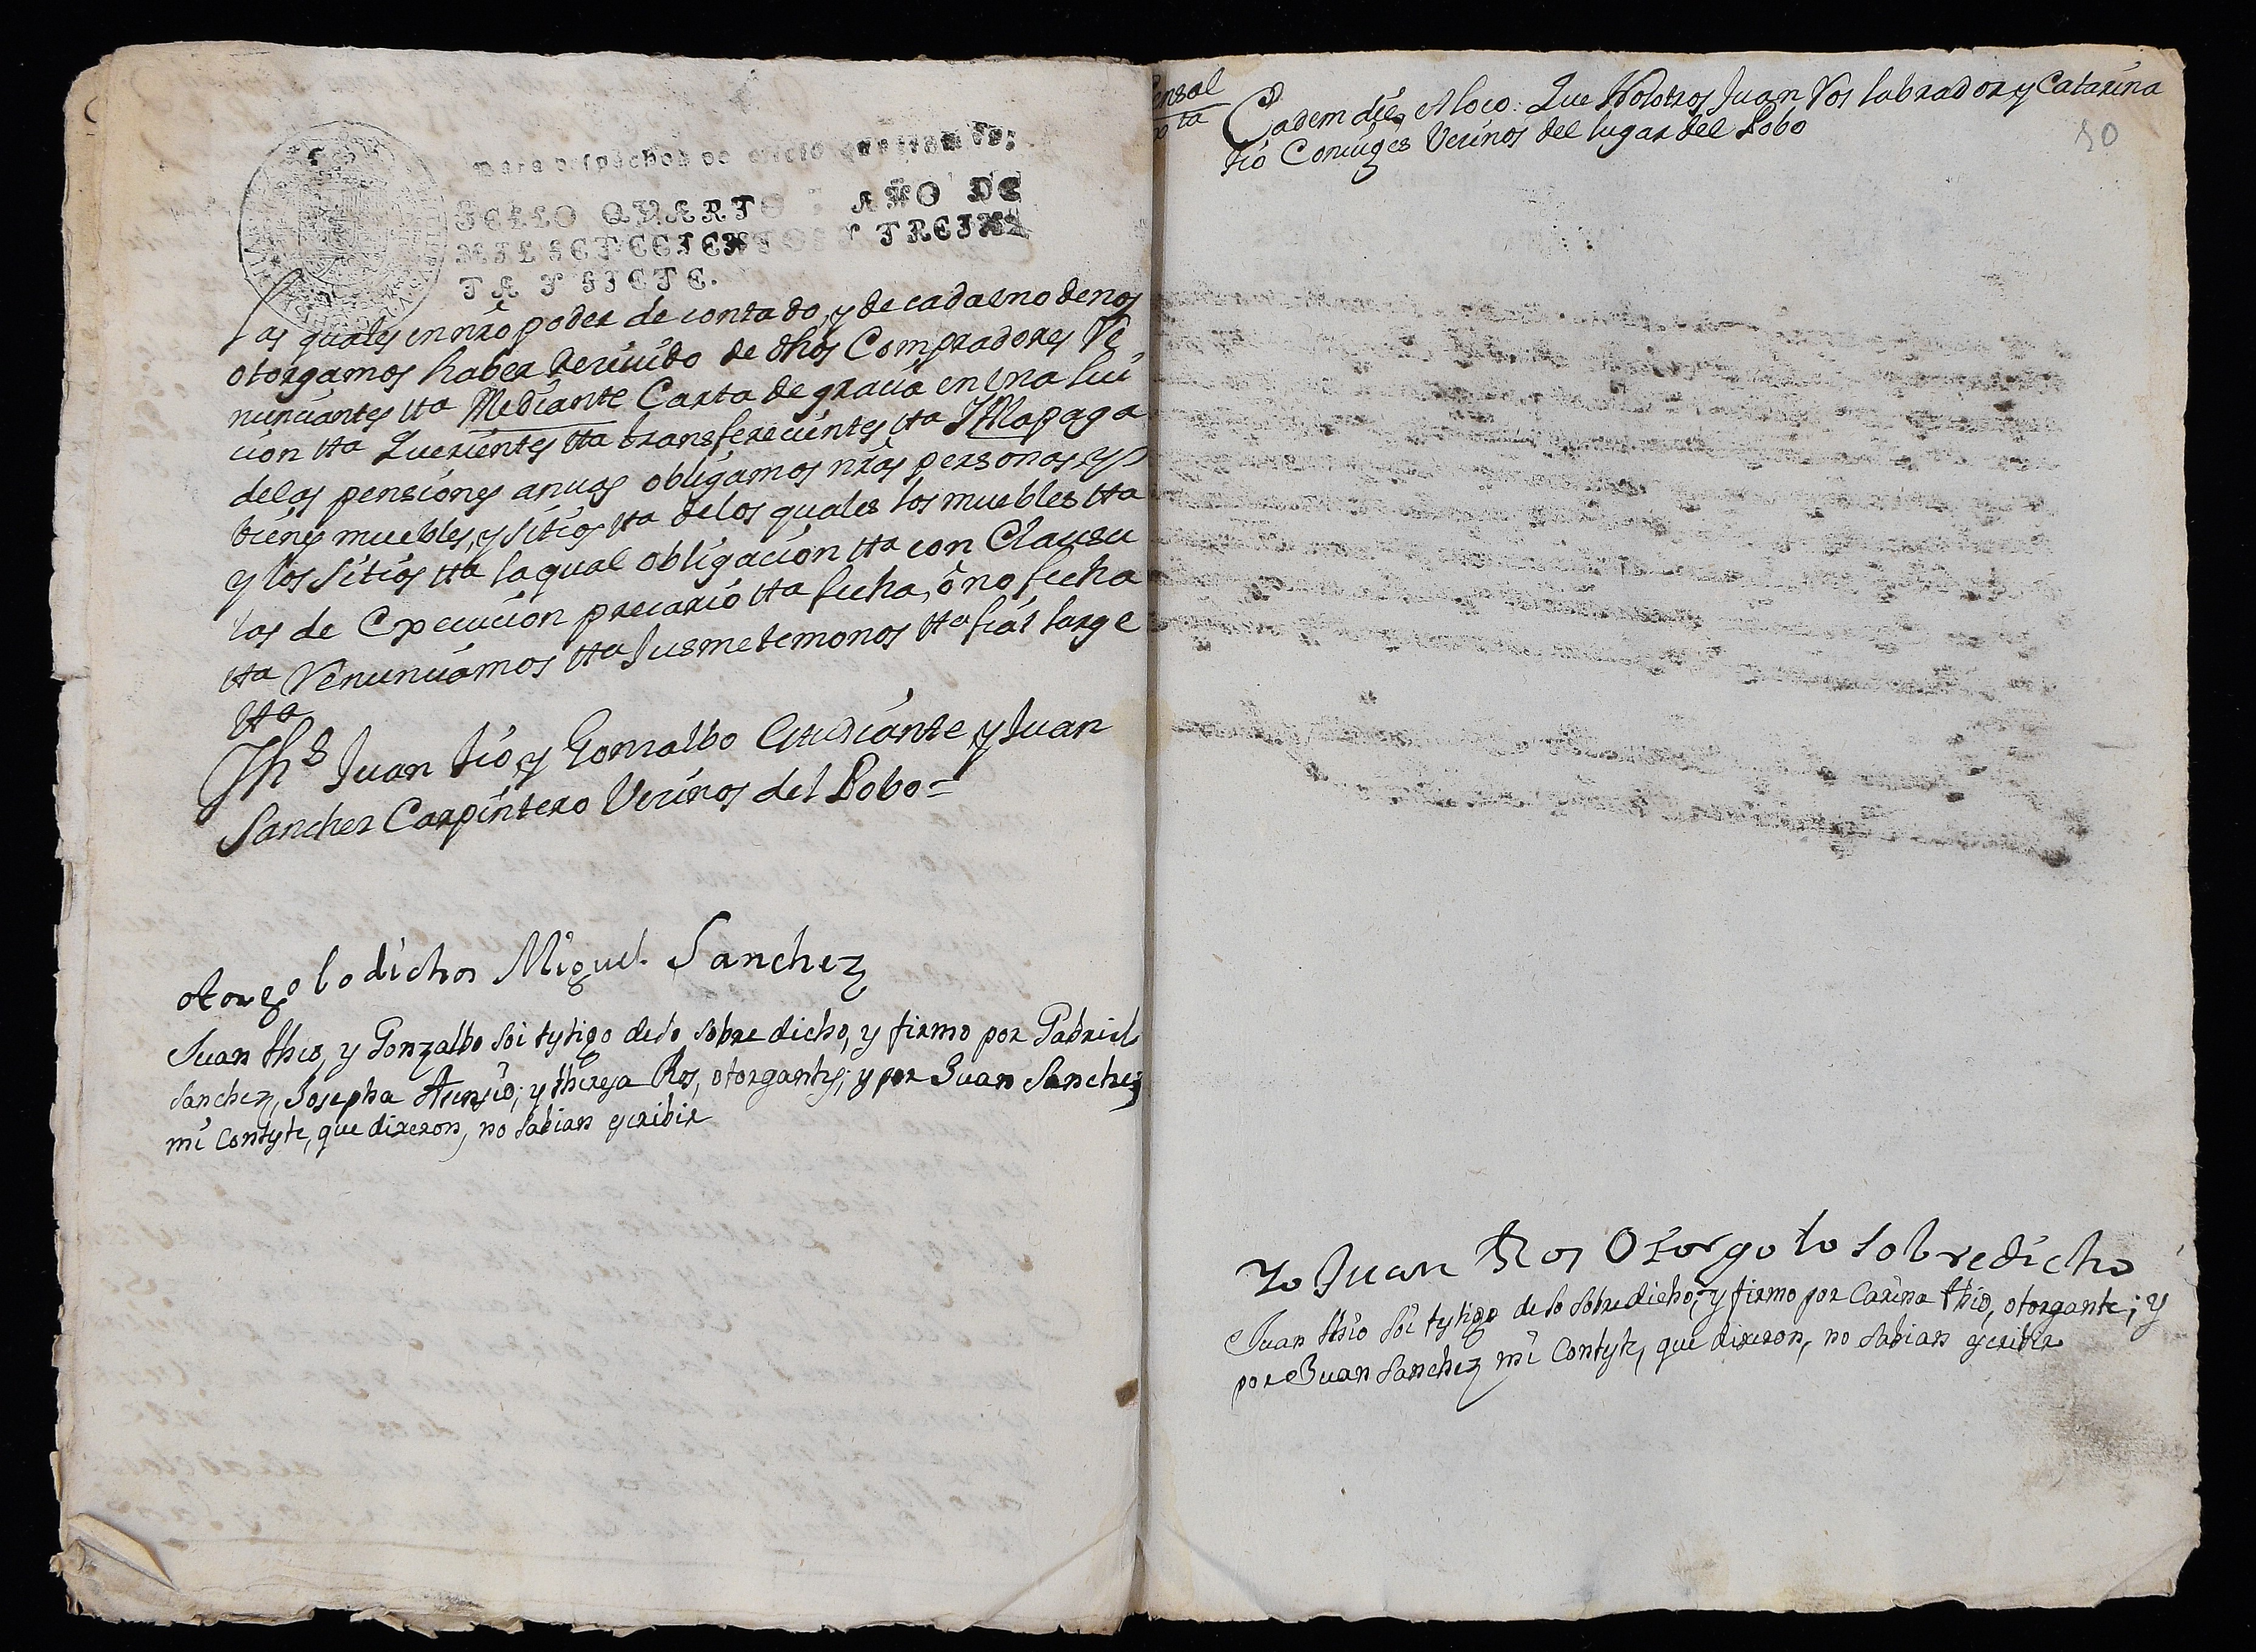 para despachos de oficio quatro mrs;
SELLO QVARTO, AÑO DE
MIL SETECIENTOS Y TREIN-
TA Y SIETE.
las quales en nro poder de contado, y de cada uno de nos
otorgamos haber Reciuido de dhos Compradores Re
nunciantes tta Mediante Carta de gracia en una lui
cion tta Querientes tta transferecientes tta Y Ala paga
de las pensiones anuas obligamos nras personas, y
bienes muebles, y sitios tta de los quales los muebles tta
y los Sitios tta la qual obligacion tta con Clausu
las de Execucion precario tta fecha, ò no fecha
tta Renunciamos tta Jusmetemonos tta fiat large
tta
Ths Juan tio y Gonzalbo Estudiante y Juan
Sanchez Carpintero Vecinos del Pobo=
otorgo lo dicho Miguel Sanchez
Juan thio, y Gonzalbo soi testigo de lo sobre dicho, y firmo por Gabriel
Sanchez, Josepha Asensio; y theresa Ros, otorgantes; y por Juan Sanchez
mi Conteste, que dixeron, no sabian escribir
ensal
ta
Eadem die, Aloco: Que Nosotros Juan Ros labrador y Catarina
tio Coniuges Vecinos del lugar del Pobo
50
Yo Juan Ros Otorgo lo sobredicho
Juan thio soi testigo de lo sobredicho; y firmo por Carina thio, otorgante; y
por Juan Sanchez mi Conteste, que dixeron, no sabian escribir